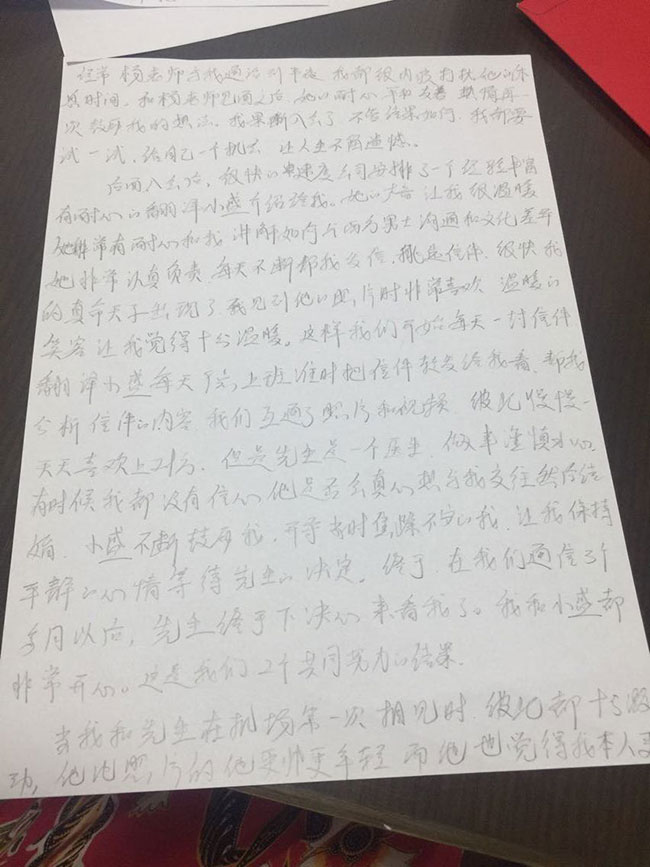 经常杨老师与我通话到半夜 我都很内疚打扰他的休
息时间. 和杨老师见面之后. 她的耐心 和友善 热情再一
次鼓励我的想法. 我果断入会了 不管结果如何. 我都要
试一试, 给自己一个机会 让人生不留遗憾。
后面入会后, 很快的速度公司安排了一个经验丰富
有耐心的翻译小盛介绍给我。她的声音 让我很温暖
她非常有耐心和我 讲解如何与西方男士沟通和文化差异
她非常认真负责. 每天不断帮我发信. 挑选信件. 很快我
的真命天子出现了. 我见到他的照片时非常喜欢 温暖的
笑容让我觉得十分温暖。这样我们开始每天一封信件.
翻译小盛每天 上班准时把信件转发给我看. 帮我
分析信件的内容. 我们互通了照片和视频. 彼此慢慢一
天天喜欢上对方. 但是先生是一个医生. 做事谨慎小心.
有时候我都没有信心他是否会真心想与我交往然后结
婚. 小盛不断鼓励我. 开导当时焦躁不安的我. 让我保持
平静的心情等待先生的决定。终于. 在我们通信3个
多月以后, 先生终于下决心来看我了。我和小盛都
非常开心。这是我们2个共同努力的结果.
当我和先生在机场第一次相见时. 彼此都十分激
动, 他比照片的他要帅更年轻 而他也觉得我本人更